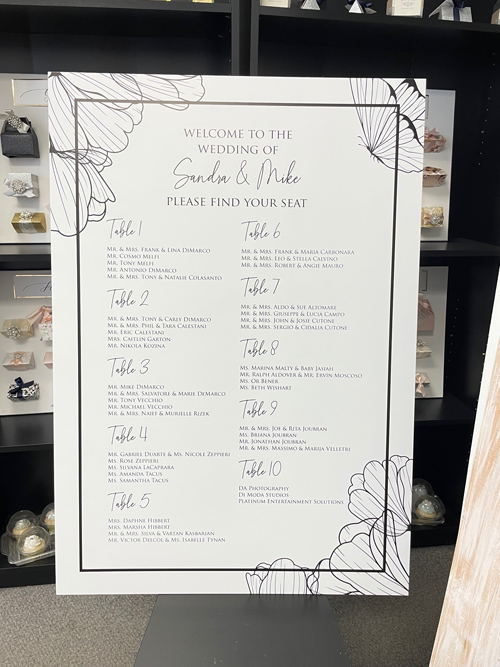 WELCOME TO THE
WEDDING OF
Sandra & Mike
PLEASE FIND YOUR SEAT
Table 1
MR. & MRS. FRANK & LINA DIMARCO
MR. COSMO MELFI
MR. TONY MELFI
MR. ANTONIO DIMARCO
MR. & MRS. TONY & NATALIE COLASANTO
Table 2
MR. & MRS. TONY & CARLY DIMARCO
MR. & MRS. PHIL & TARA CALESTANI
MR. ERIC CALESTANI
MRS. CAITLIN GARTON
MR. NIKOLA KOZINA
Table 3
MR. MIKE DIMARCO
MR. & MRS. SALVATORE & MARIE DIMARCO
MR. TONY VECCHIO
MR. MICHAEL VECCHIO
MR. & MRS. NAIEF & MURIELLE RIZEK
Table 4
MR. GABRIEL DUARTE & MS. NICOLE ZEPPIERI
MS. ROSE ZEPPIERI
MS. SILVANA LACAPRARA
MS. AMANDA TACUS
MS. SAMANTHA TACUS
Table 5
MRS. DAPHNE HIBBERT
MRS. MARSHA HIBBERT
MR. & MRS. SILVA & VARTAN KASBARIAN
MR. VICTOR DELCOL & MS. ISABELLE TYNAN
Table 6
MR. & MRS. FRANK & MARIA CARBONARA
MR. & MRS. LEO & STELLA CALVINO
MR. & MRS. ROBERT & ANGIE MAURO
Table 7
MR. & MRS. ALDO & SUE ALTOMARE
MR. & MRS. GIUSEPPE & LUCIA CAMPO
MR. & MRS. JOHN & JOSIE CUTONE
MR. & MRS. SERGIO & CIDALIA CUTONE
Table 8
MS. MARINA MALTY & BABY JASIAH
MR. RALPH ALDOVER & MR. ERVIN MOSCOSO
MS. OR BENER
MS. BETH WISHART
Table 9
MR. & MRS. JOE & RITA JOUBRAN
MS. BRIANA JOUBRAN
MR. JONATHAN JOUBRAN
MR. & MRS. MASSIMO & MARIJA VELLETRI
Table 10
DA PHOTOGRAPHY
DJ MODA STUDIOS
PLATINUM ENTERTAINMENT SOLUTIONS